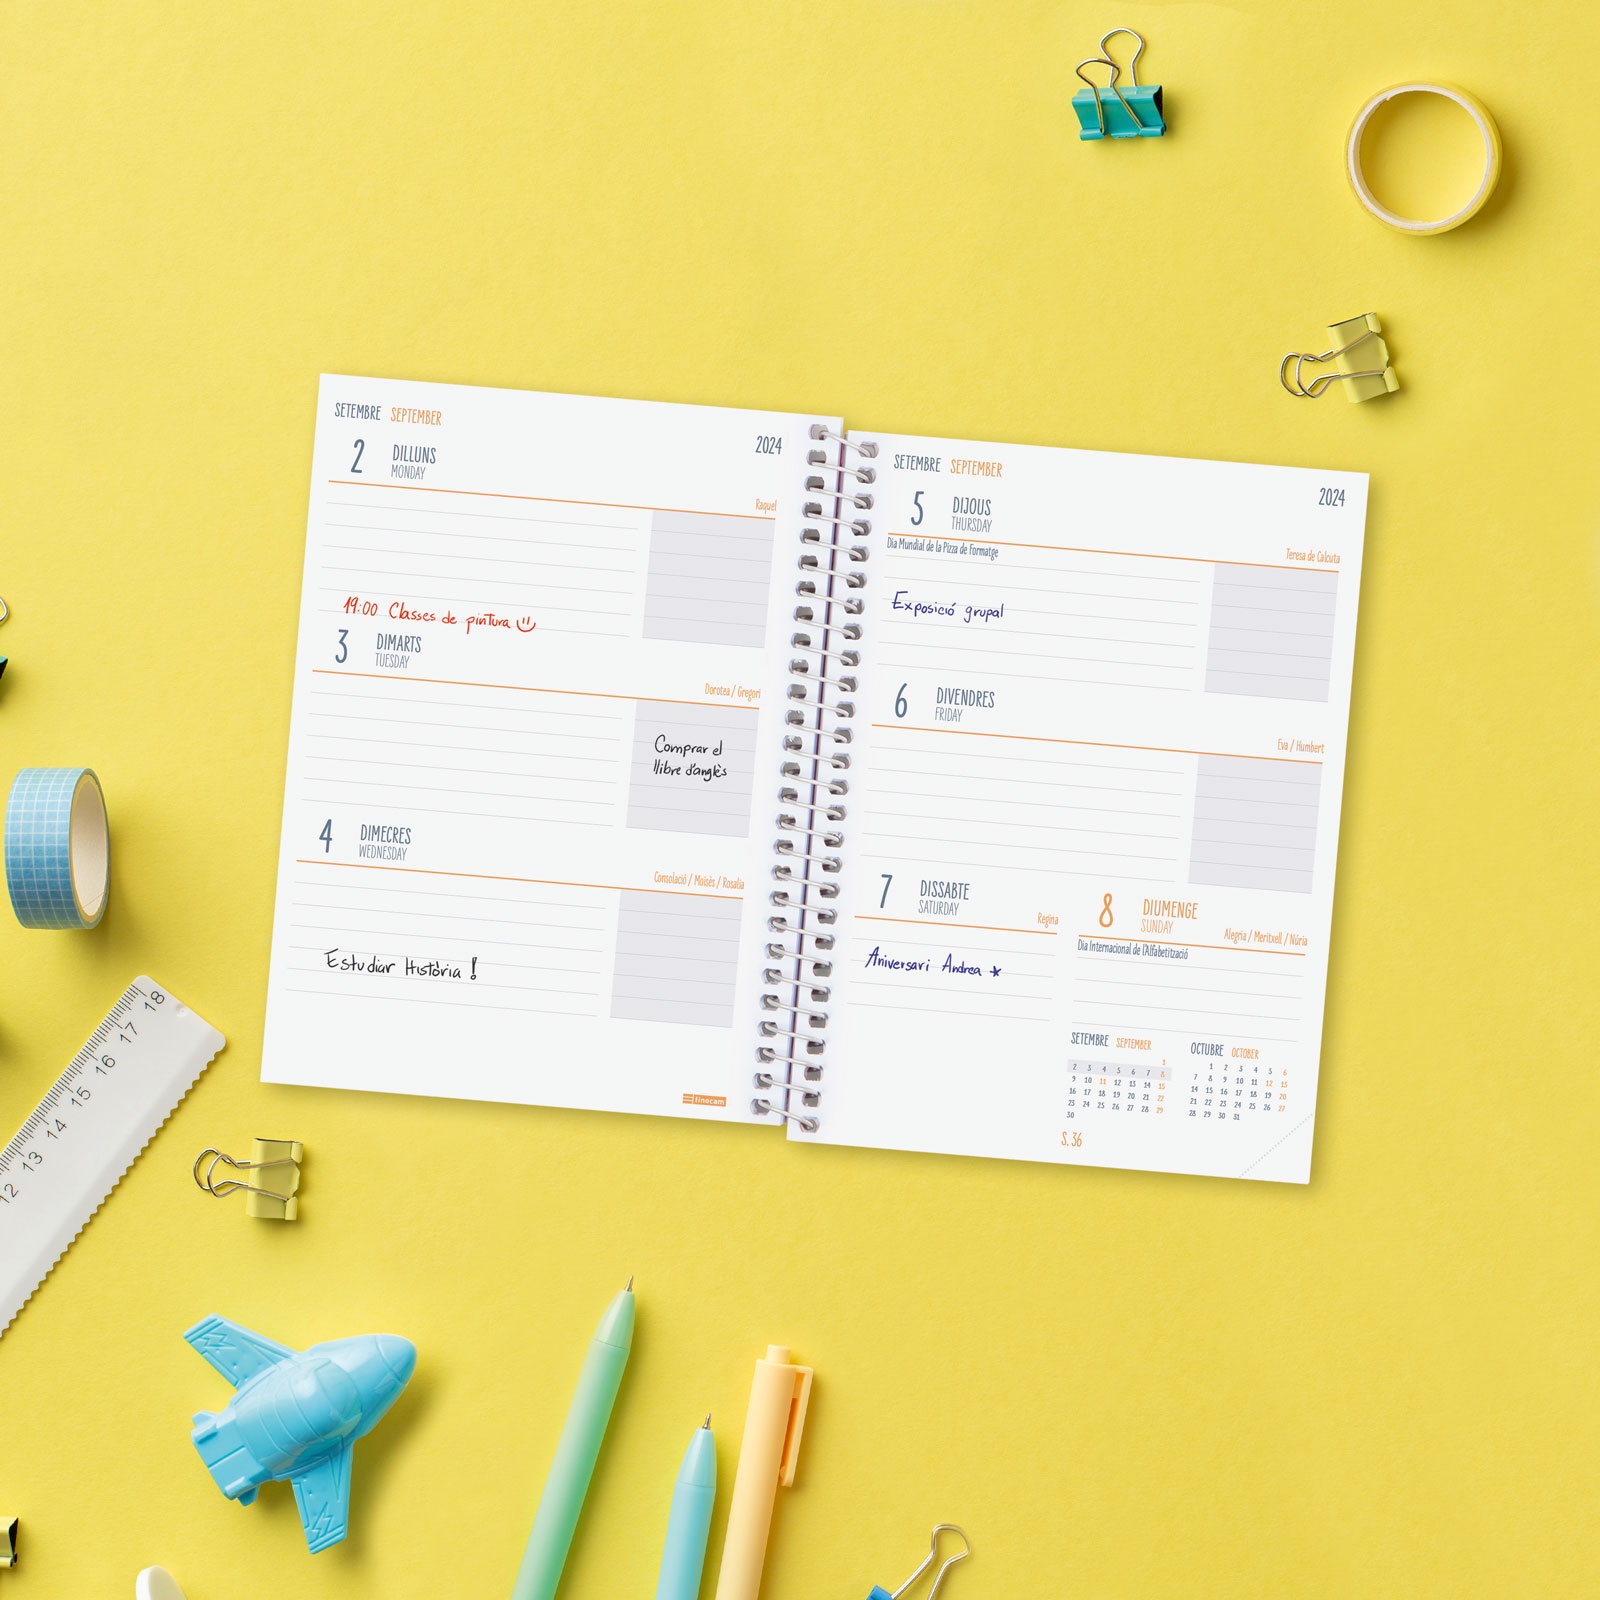 SETEMBRE SEPTEMBER
2024
2 DILLUNS
MONDAY
Raquel
19:00 Classes de pintura
3 DIMARTS
TUESDAY
Dorotea / Gregori
Comprar el
llibre d'anglès
4 DIMECRES
WEDNESDAY
Consolació / Moisès / Rosalia
Estudiar Història !
finocam
SETEMBRE SEPTEMBER
2024
5 DIJOUS
THURSDAY
Teresa de Calcuta
Dia Mundial de la Pizza de Formatge
Exposició grupal
6 DIVENDRES
FRIDAY
Eva / Humbert
7 DISSABTE
SATURDAY
Regina
Aniversari Andrea *
8 DIUMENGE
SUNDAY
Alegria / Meritxell / Núria
Dia Internacional de l'Alfabetització
SETEMBRE SEPTEMBER
1
2 3 4 5 6 7 8
9 10 11 12 13 14 15
16 17 18 19 20 21 22
23 24 25 26 27 28 29
30
OCTUBRE OCTOBER
1 2 3 4 5 6
7 8 9 10 11 12 13
14 15 16 17 18 19 20
21 22 23 24 25 26 27
28 29 30 31
S. 36
18
17
16
15
14
13
12